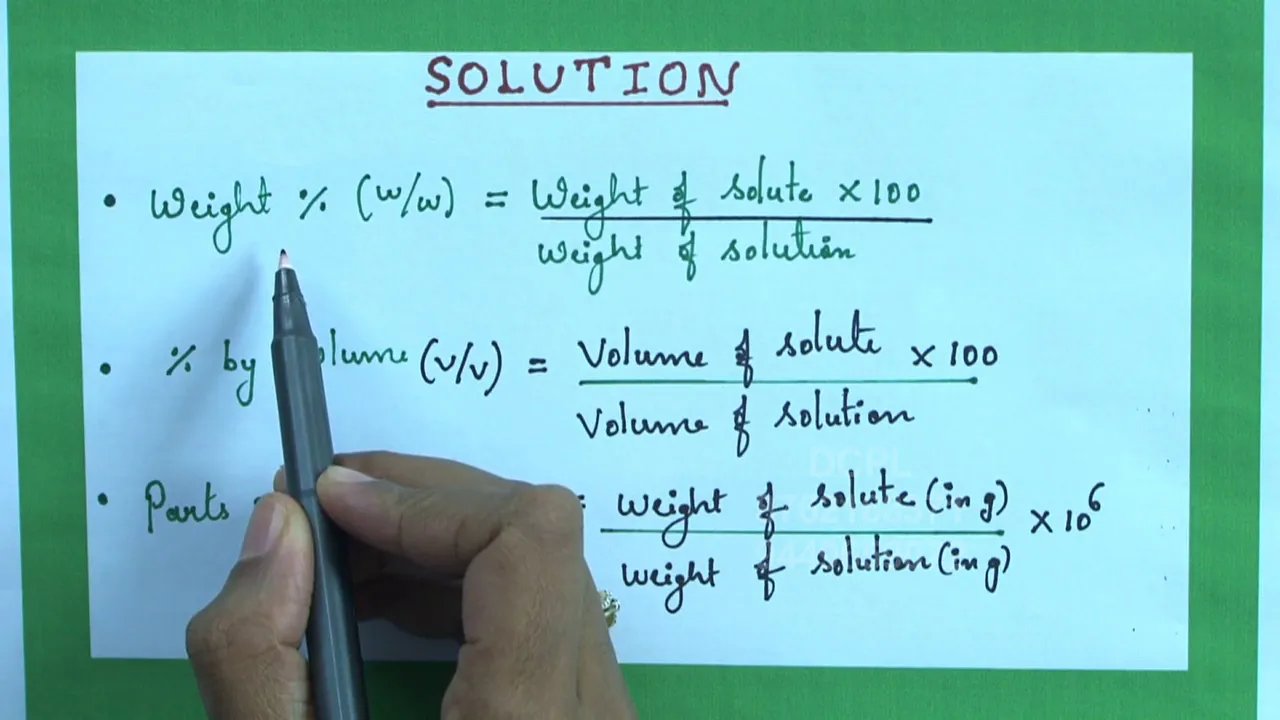 SOLUTION
• Weight % (w/w) = Weight of solute × 100
Weight of solution
• % by (v/v) = Volume of solute × 100
Volume of solution
• Parts = Weight of solute (in g) × 10⁶
Weight of solution (in g)